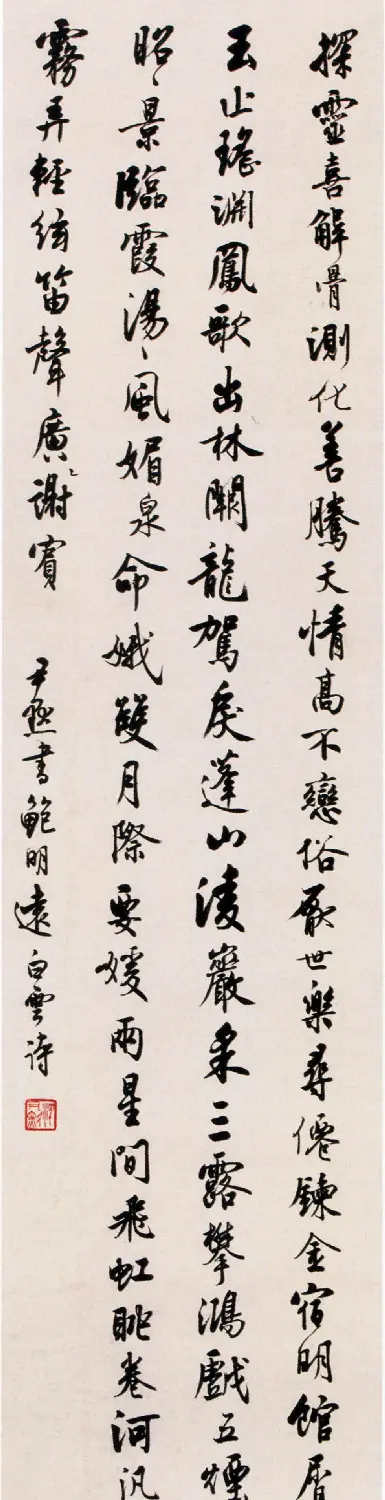 探靈喜解骨測化善騰天情高不戀俗厭世樂尋僊鍊金宿明館屑
玉止瑤淵鳳歌出林闕龍駕戾蓬山淩巖采三露攀鴻戲五煙
昭〻景臨霞湯〻風媚泉命娥雙月際要媛兩星間飛虹眺卷河汎
霧弄輕弦笛聲廣〻謝賓
尹默書鮑明遠白雲诗